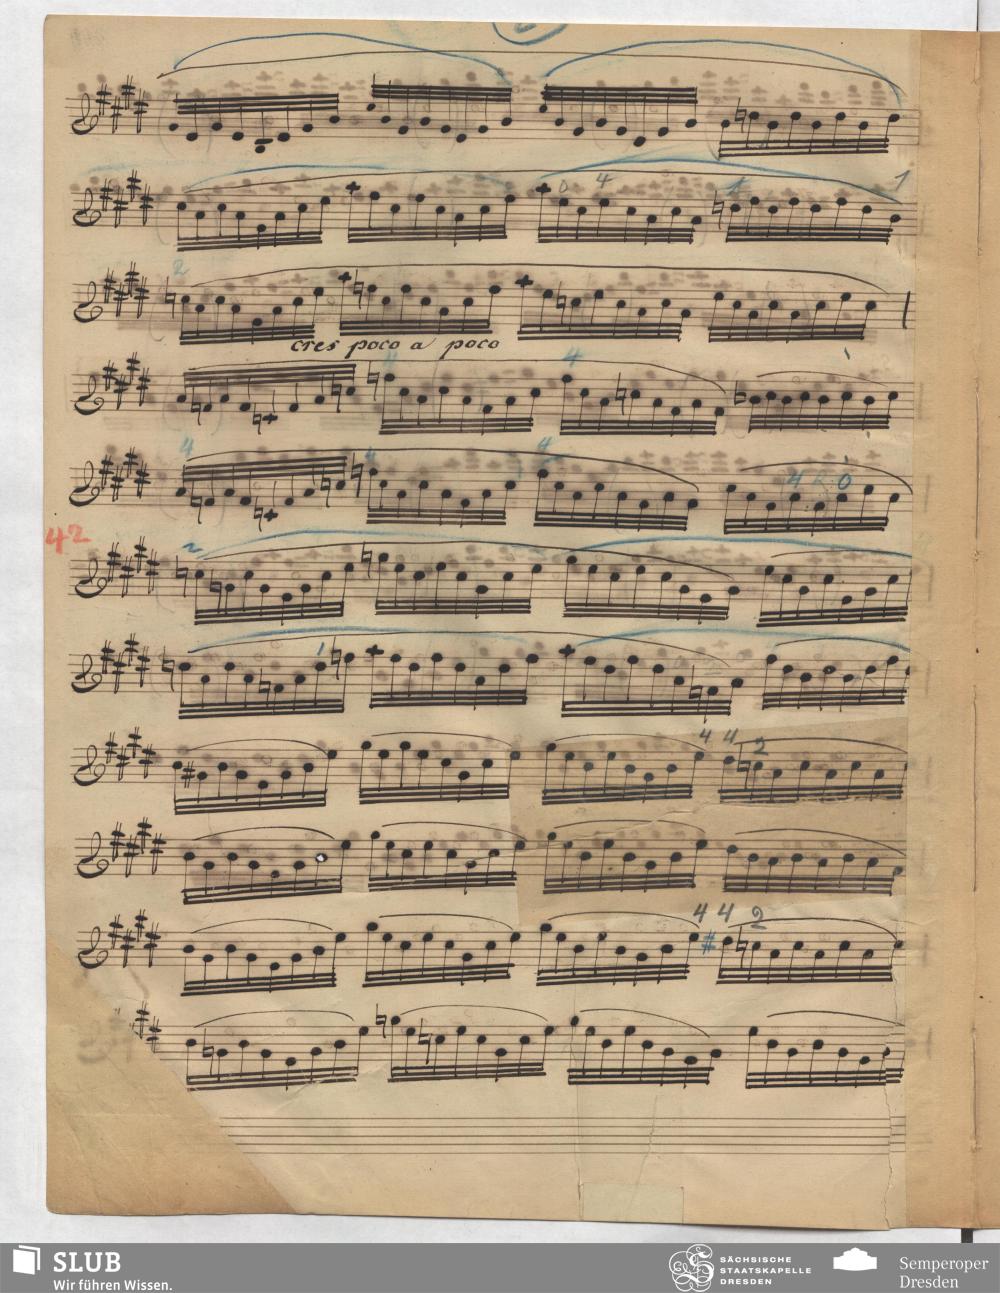 1
4
1
2
cres poco a poco
4
4
4
4
42
2
1
4 4 2
4 4 2
SLUB
Wir führen Wissen.
SÄCHSISCHE
STAATSKAPELLE
DRESDEN
Semperoper
Dresden